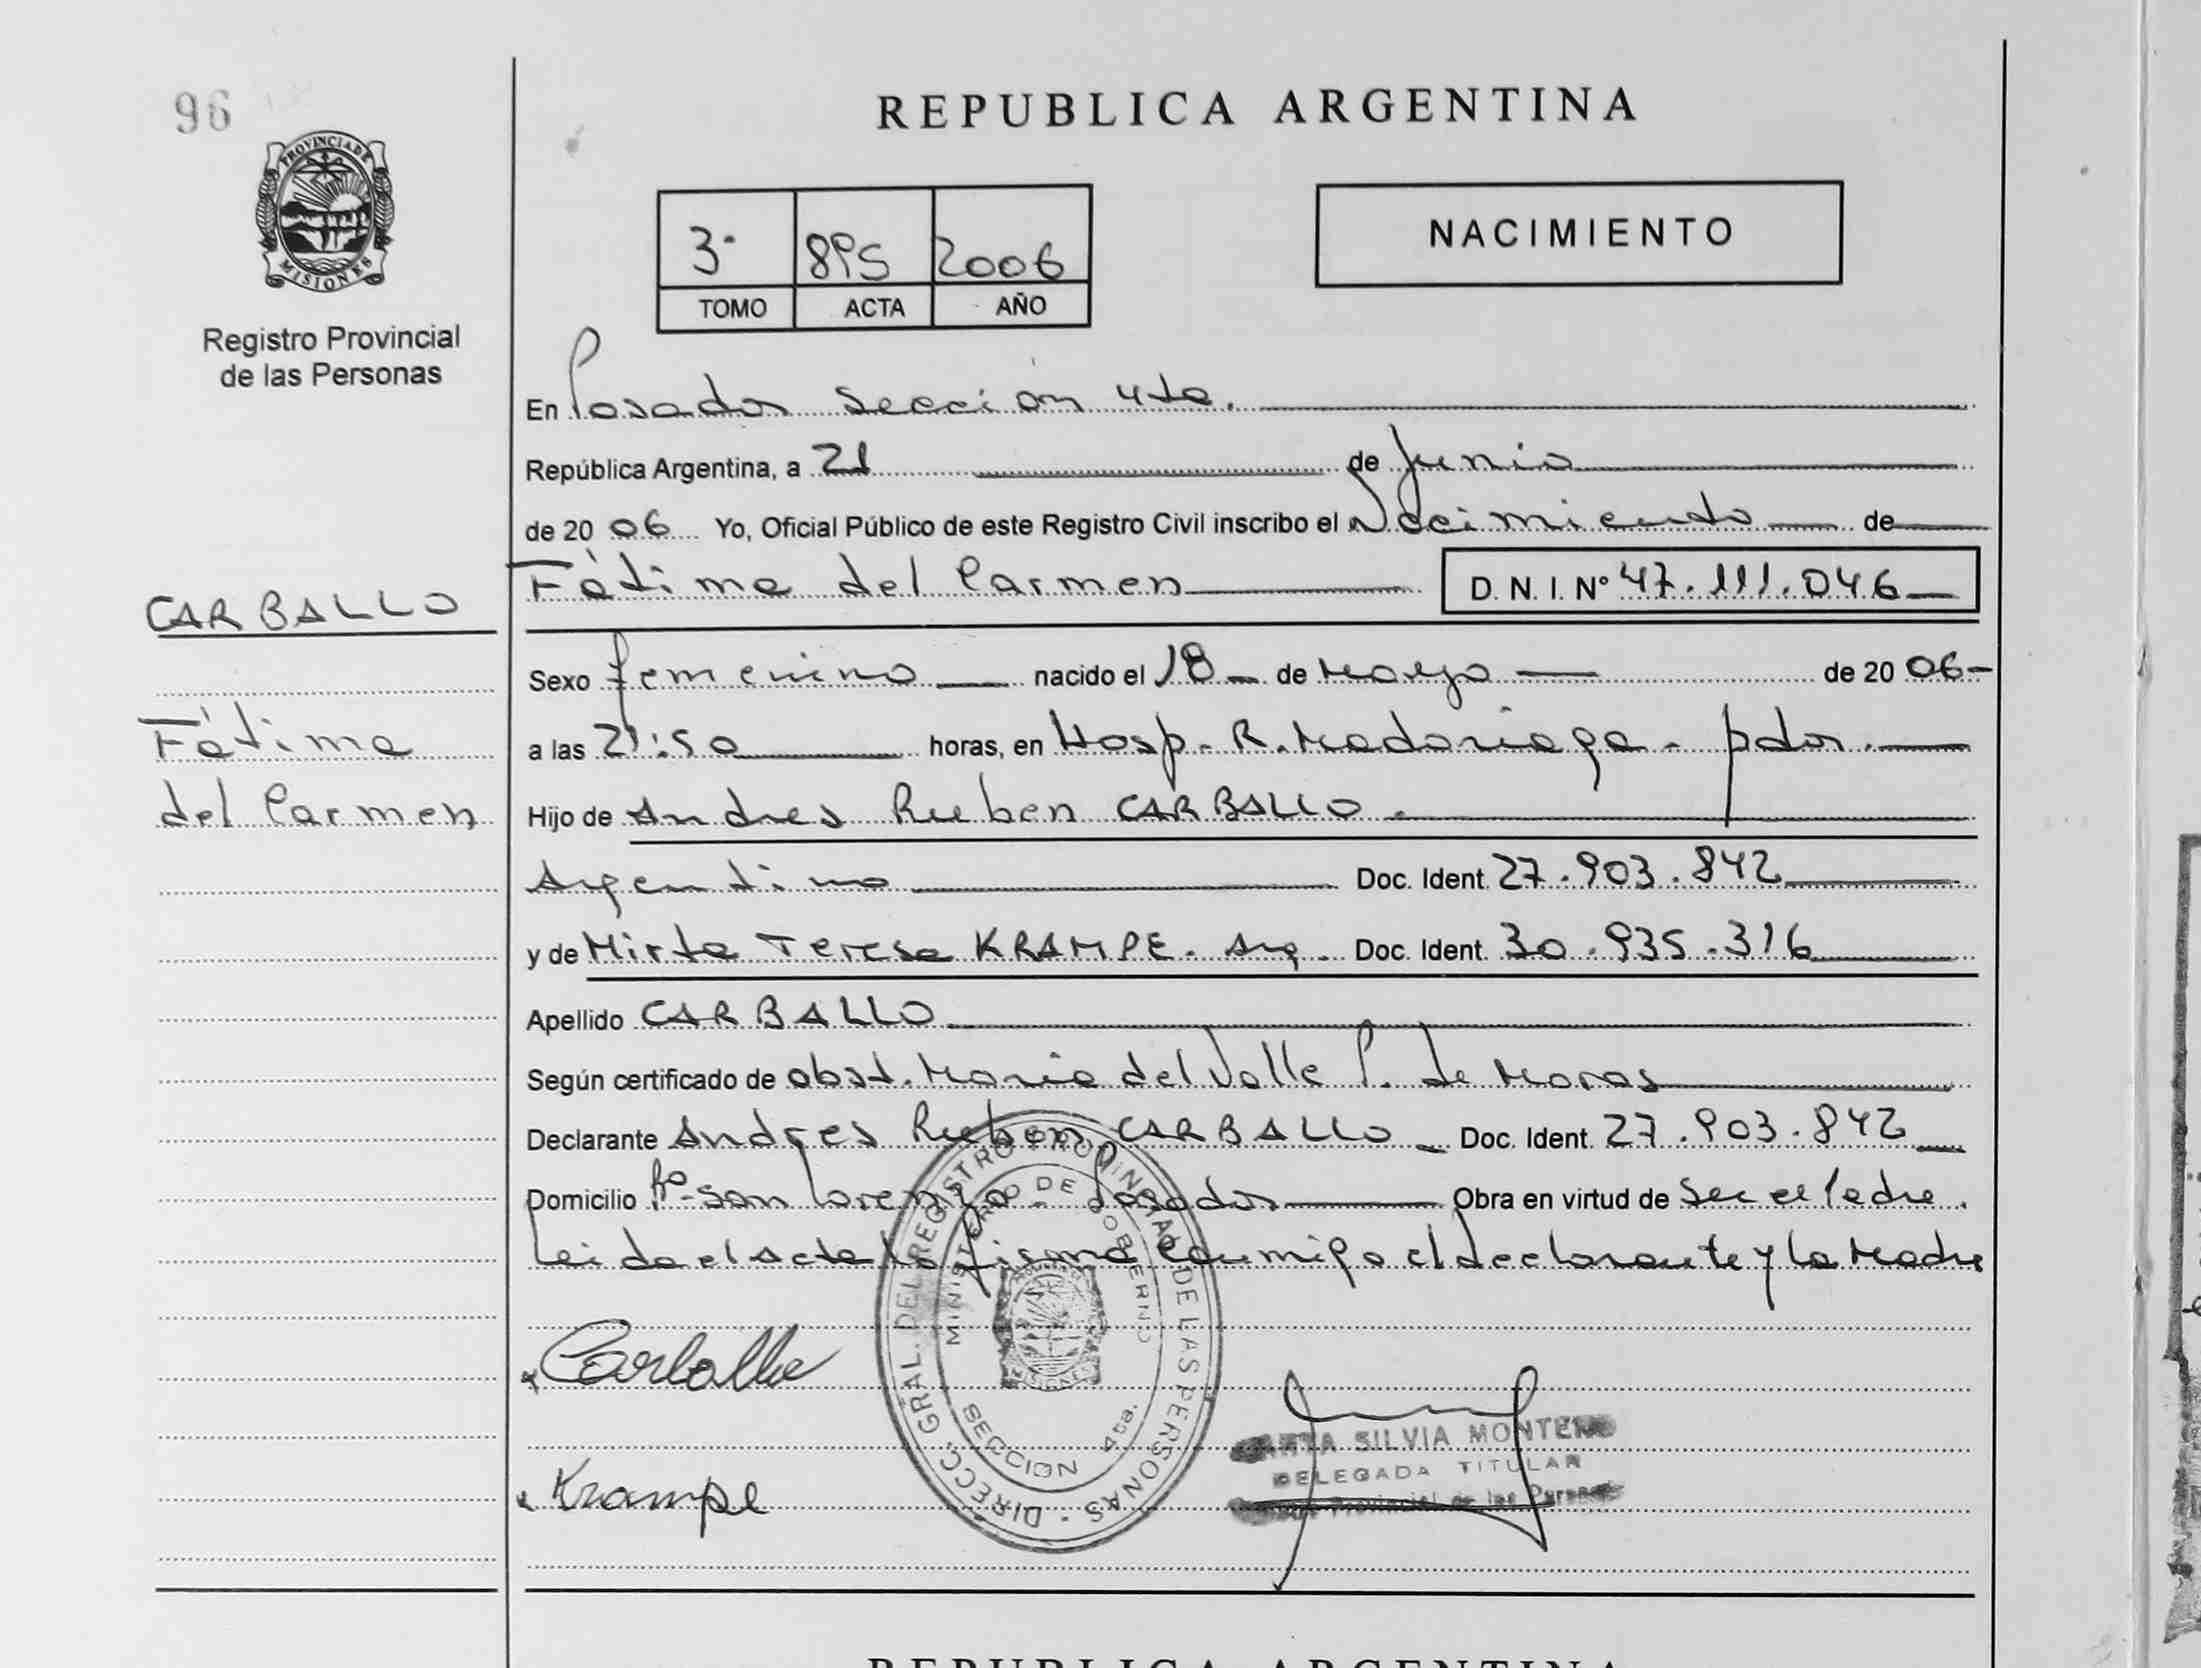 96
PROVINCIA DE
MISIONES
Registro Provincial
de las Personas
REPUBLICA ARGENTINA
3º 895 2006
TOMO ACTA AÑO
NACIMIENTO
En Posadas Sección 4ta.
República Argentina, a 21 de Junio
de 2006 Yo, Oficial Público de este Registro Civil inscribo el Nacimiento de
Fátima del Carmen D. N. I. Nº 47.111.046
CARBALLO
Fátima
del Carmen
Sexo femenino nacido el 18 de Mayo de 2006
a las 21:50 horas, en Hosp. R. Madariaga - pdas.
Hijo de Andres Ruben CARBALLO.
Argentino Doc. Ident. 27.903.842
y de Mirta Teresa KRAMPE. Arg. Doc. Ident. 30.935.316
Apellido CARBALLO
Según certificado de obst. Maria del Valle P. de Moras
Declarante Andres Ruben CARBALLO Doc. Ident. 27.903.842
Domicilio Bº San Lorenzo - Posadas Obra en virtud de Ser el Padre.
Leida el Acta la firma conmigo el declarante y la Madre
Carballo
Krampe
DIRECC. GRAL. DEL REGISTRO PROVINCIAL DE LAS PERSONAS
MINISTERIO DE GOBIERNO
SECCION 4ta.
SILVIA MONTERO
DELEGADA TITULAR
Provincial de las Personas
REPUBLICA ARGENTINA